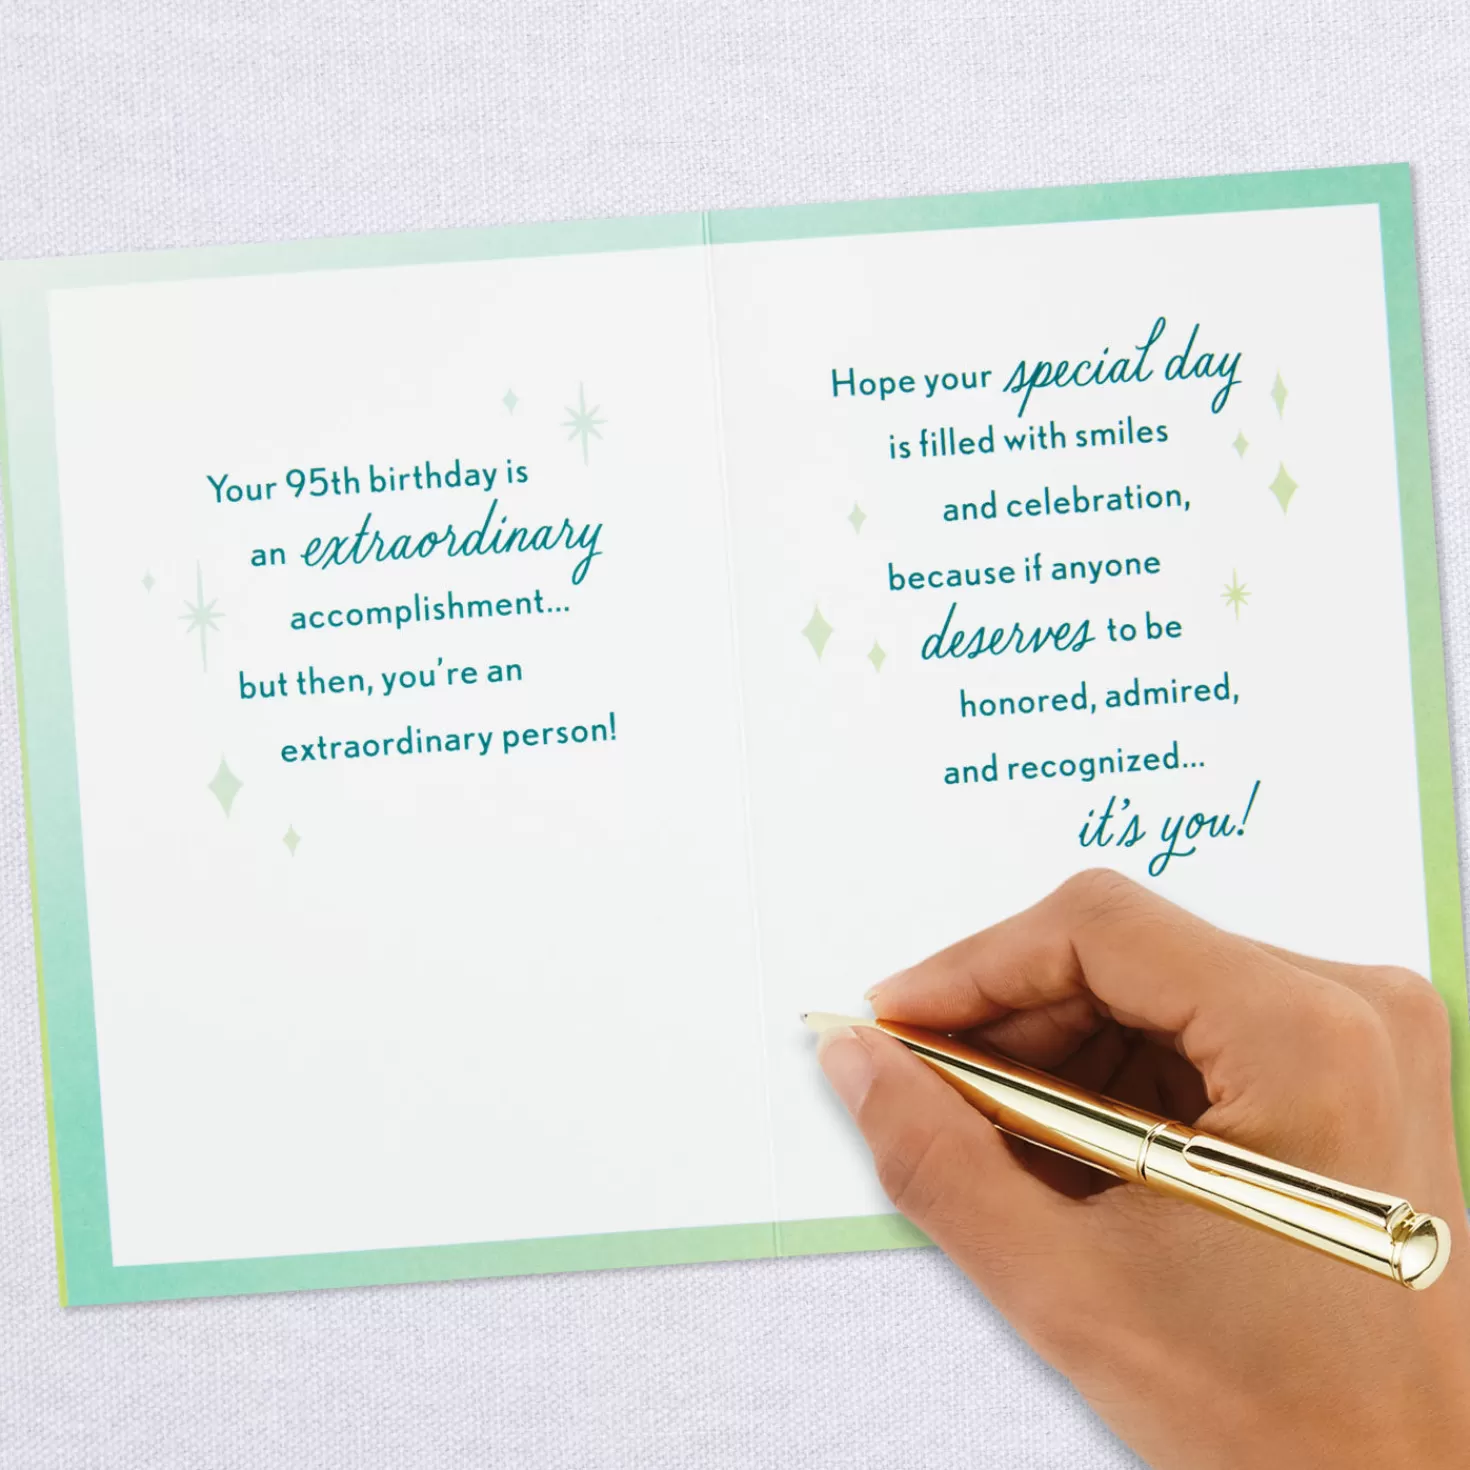 Your 95th birthday is
an extraordinary
accomplishment...
but then, you're an
extraordinary person!
Hope your special day
is filled with smiles
and celebration,
because if anyone
deserves to be
honored, admired,
and recognized...
it's you!